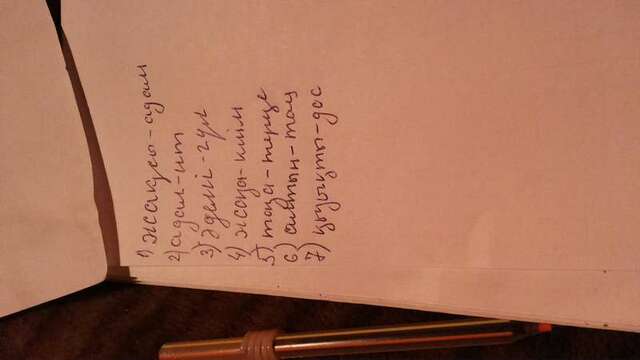 1) жақсы - адам
2) адал - ит
3) Әдемі - гүл
4) жаңа - киім
5) таза - терезе
6) алтын - таң
7) қызықты - дос